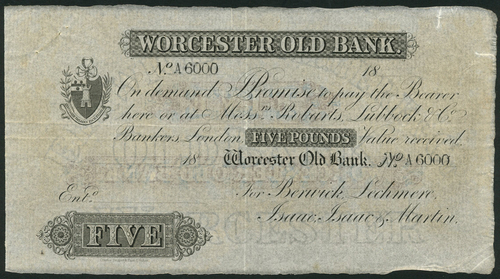 WORCESTER OLD BANK.
No. A6000 18
On demand I Promise to pay the Bearer
here or at Mess.rs Robarts, Lubbock & Co.
Bankers, London, FIVE POUNDS Value received.
18 Worcester Old Bank. No. A6000
Ent.d For Berwick, Lechmere,
Isaac, Isaac & Martin.
FIVE